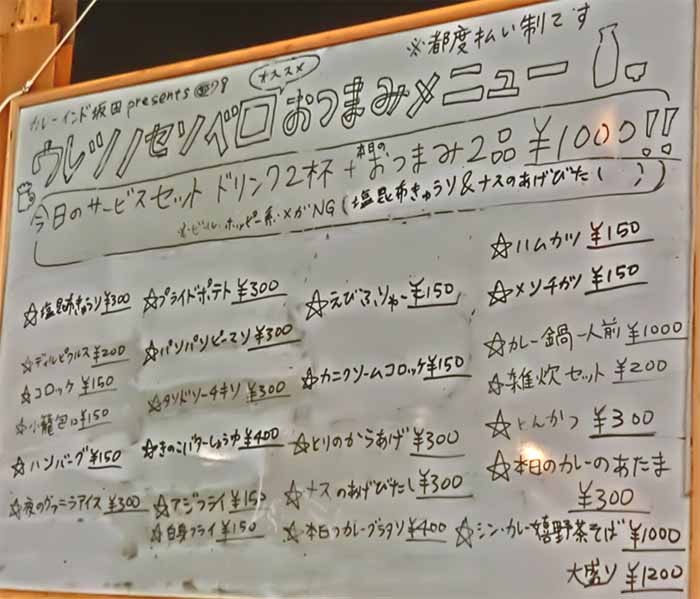 ※都度払い制です
カレーインド坂田presents
オススメ
ウレツノセツイロおつまみメニュー
今日のサービスセット ドリンク2杯+本日のおつまみ2品¥1000!!
※ビール・ホッピー系・メガNG(塩昆布きゅうり&ナスのあげびたし)
☆塩昆布きゅうり¥300
☆ディルピクルス¥200
☆コロッケ¥150
☆小籠包¥150
☆ハンバーグ¥150
☆夜のヴァニラアイス¥300
☆フライドポテト¥300
☆パリパリピーマン¥300
☆タンドリーチキン¥300
☆きのこバターしょうゆ¥400
☆アジフライ¥150
☆白身フライ¥150
☆えびふりゃー¥150
☆カニクリームコロッケ¥150
☆とりのからあげ¥300
☆ナスのあげびたし¥300
☆本日のカレーグラタン¥400
☆ハムカツ¥150
☆メンチカツ¥150
☆カレー鍋一人前¥1000
☆雑炊セット¥200
☆とんかつ¥300
☆本日のカレーのあたま
¥300
☆シン・カレー嬉野茶そば¥1000
大盛り¥1200